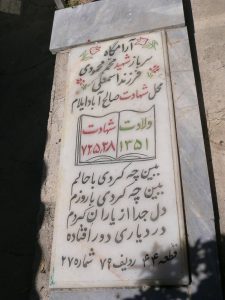 آرامگاه
سرباز شهید محمد محمودی
فرزند اسمعلی
محل شهادت صالح آباد ایلام
ولادت شهادت
۱۳۵۱ ۷۲٫۵٫۲۸
ببین چه کردی با حالم
ببین چه کردی با روزم
دل جدا از یاران کردم
در دیاری دور افتاده
قطعه ۴۴ ردیف ۷۴ شماره ۲۷